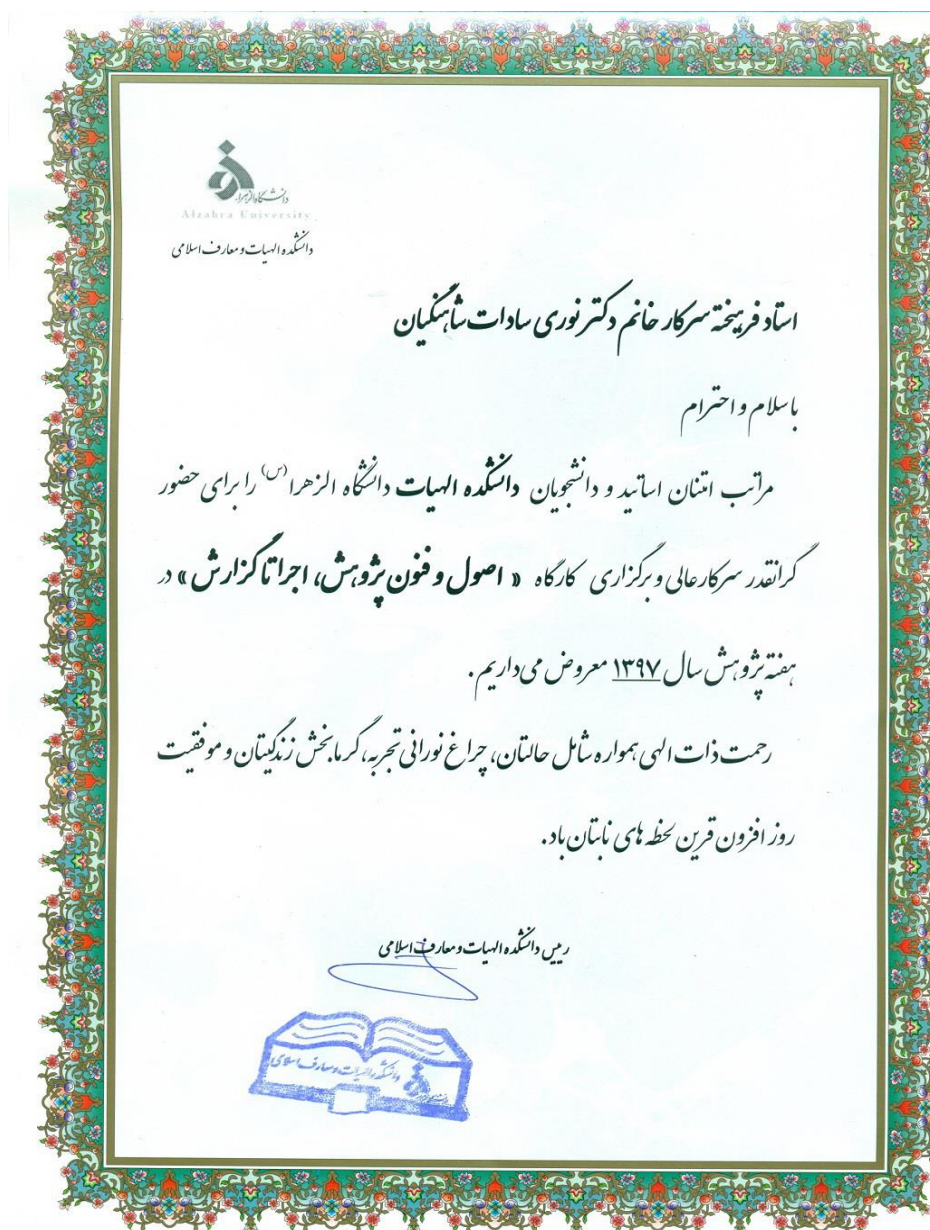 دانشگاه الزهرا
Alzahra University
دانشکده الهیات و معارف اسلامی
استاد فرهیخته سرکار خانم دکتر نوری سادات شاهنگیان
باسلام و احترام
مراتب امتنان اساتید و دانشجویان دانشکده الهیات دانشگاه الزهرا (س) را برای حضور
گرانقدر سرکارعالی و برگزاری کارگاه « اصول و فنون پژوهش، اجرا تا گزارش » در
هفته پژوهش سال ۱۳۹۷ معروض می‌داریم.
رحمت ذات الهی همواره شامل حالتان، چراغ نورانی تجربه، گرمابخش زندگیتان و موفقیت
روز افزون قرین لحظه های نابتان باد.
رییس دانشکده الهیات و معارف اسلامی
دانشکده الهیات و معارف اسلامی